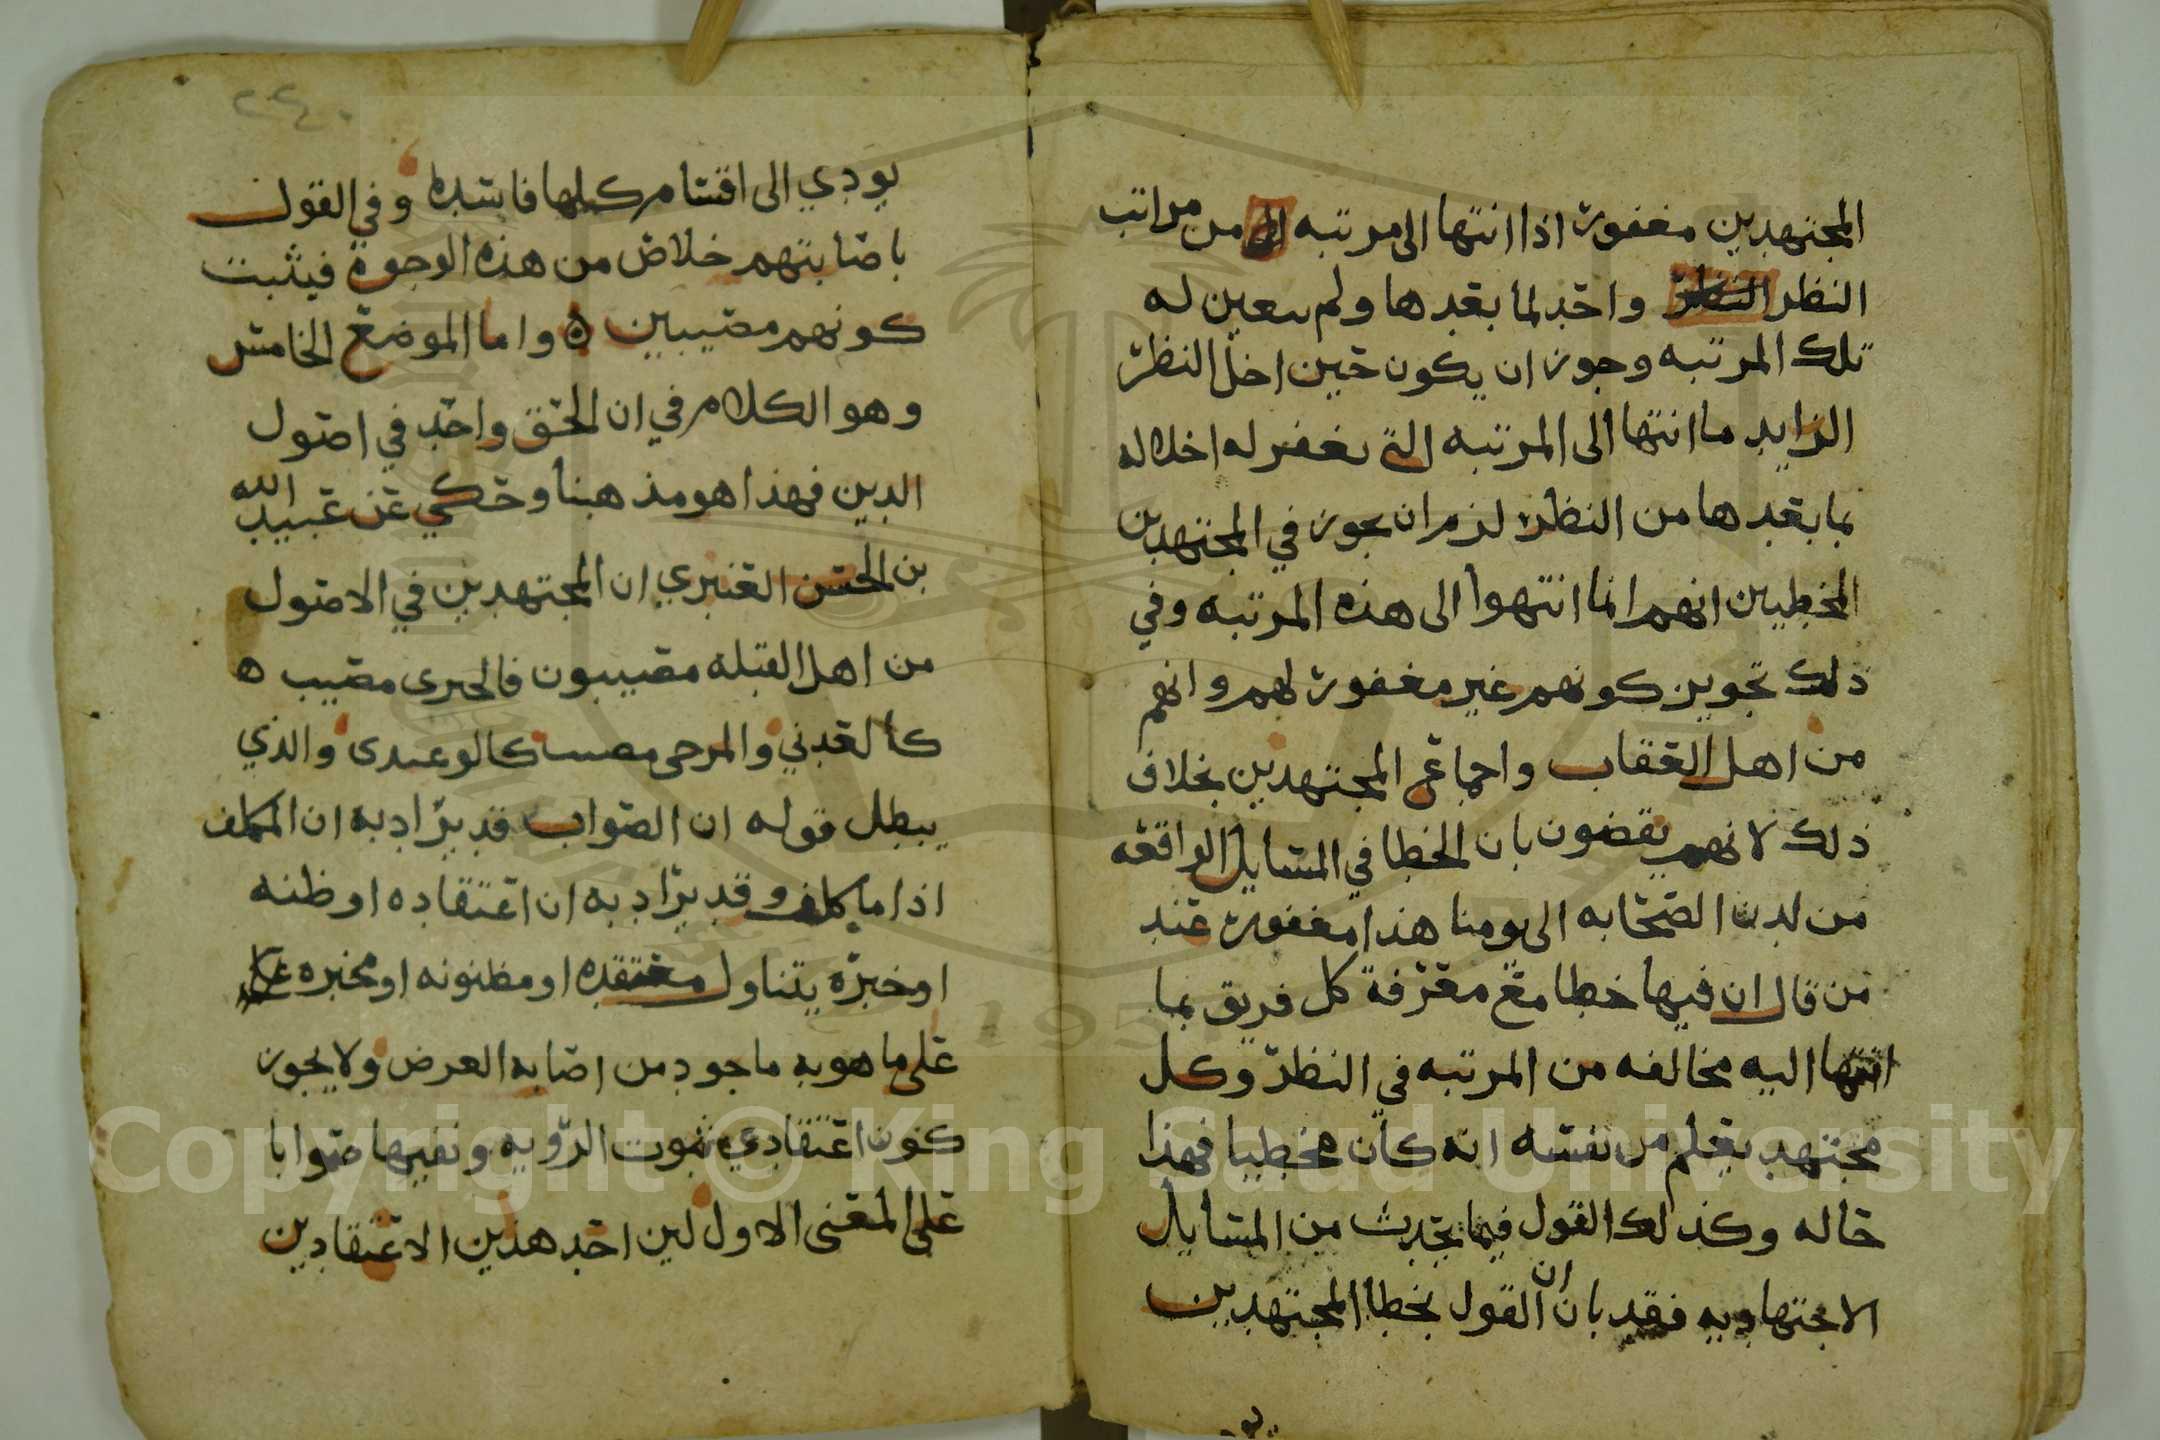 المجتهدين مغفورة اذا انتها الى مرتبه من مراتب
النظر واحد لما بعدها ولم يتعين له
تلك المرتبه وجوز ان يكون حين اخل النظر
الزايد ما انتها الى المرتبه التي يغفر له اخلاله
بما بعدها من النظر لزم ان يجوز في المجتهدين
المخطيين انهم انما انتهوا الى هذه المرتبه وفي
ذلك تجويز كونهم غير مغفورة لهم وانهم
من اهل العقاب واجماع المجتهدين بخلاف
ذلك لانهم يقضون بان الخطا في المسايل الواقعه
من لدن الصحابه الى يومنا هذا مغفورة عند
من قال ان فيها خطا مع معرفة كل فريق بما
انتها اليه مخالفه من المرتبه في النظر وكل
مجتهد يعلم من نفسه انه كان مخطيا فهذا
حاله وكذلك القول فيما يحدث من المسايل
الاجتهاديه فقد بان ان القول بخطا المجتهدين
٢٤٠
يودي الى اقسام كلها فاسده وفي القول
باصابتهم خلاص من هذه الوجوه فيثبت
كونهم مصيبين ه واما الموضع الخامس
وهو الكلام في ان الحق واحد في اصول
الدين فهذا هو مذهبنا وحكي عن عبيد الله
بن الحسن العنبري ان المجتهدين في الاصول
من اهل القبله مصيبون فالجبرى مصيب ه
كالعدلي والمرجى مصيب كالوعيدى والذي
يبطل قوله ان الصواب قد يراد به ان المكلف
اذا ما كلف وقد يراد به ان اعتقاده او ظنه
او خبره يتناول معتقده او مظنونه او مخبره
على ما هو به ماخوذ من اصابه الغرض ولا يجوز
كون اعتقادي ثبوت الرويه ونفيها صوابا
على المعنى الاول لين احد هذين الاعتقادين
Copyright © King Saud University
1957